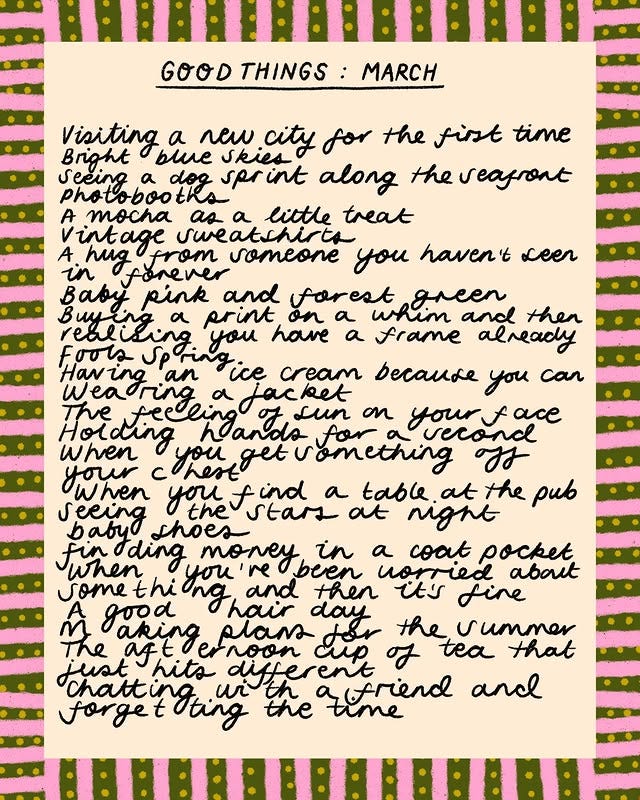 GOOD THINGS : MARCH
Visiting a new city for the first time
Bright blue skies
Seeing a dog sprint along the seafront
Photobooths
A mocha as a little treat
Vintage sweatshirts
A hug from someone you haven't seen
in forever
Baby pink and forest green
Buying a print on a whim and then
realising you have a frame already
Fools Spring.
Having an ice cream because you can
Wearing a jacket
The feeling of sun on your face
Holding hands for a second
When you get something off
your chest
When you find a table at the pub
Seeing the stars at night
baby shoes
finding money in a coat pocket
When you're been worried about
something and then it's fine
A good hair day
Making plans for the summer
The afternoon cup of tea that
just hits different
Chatting with a friend and
forgetting the time